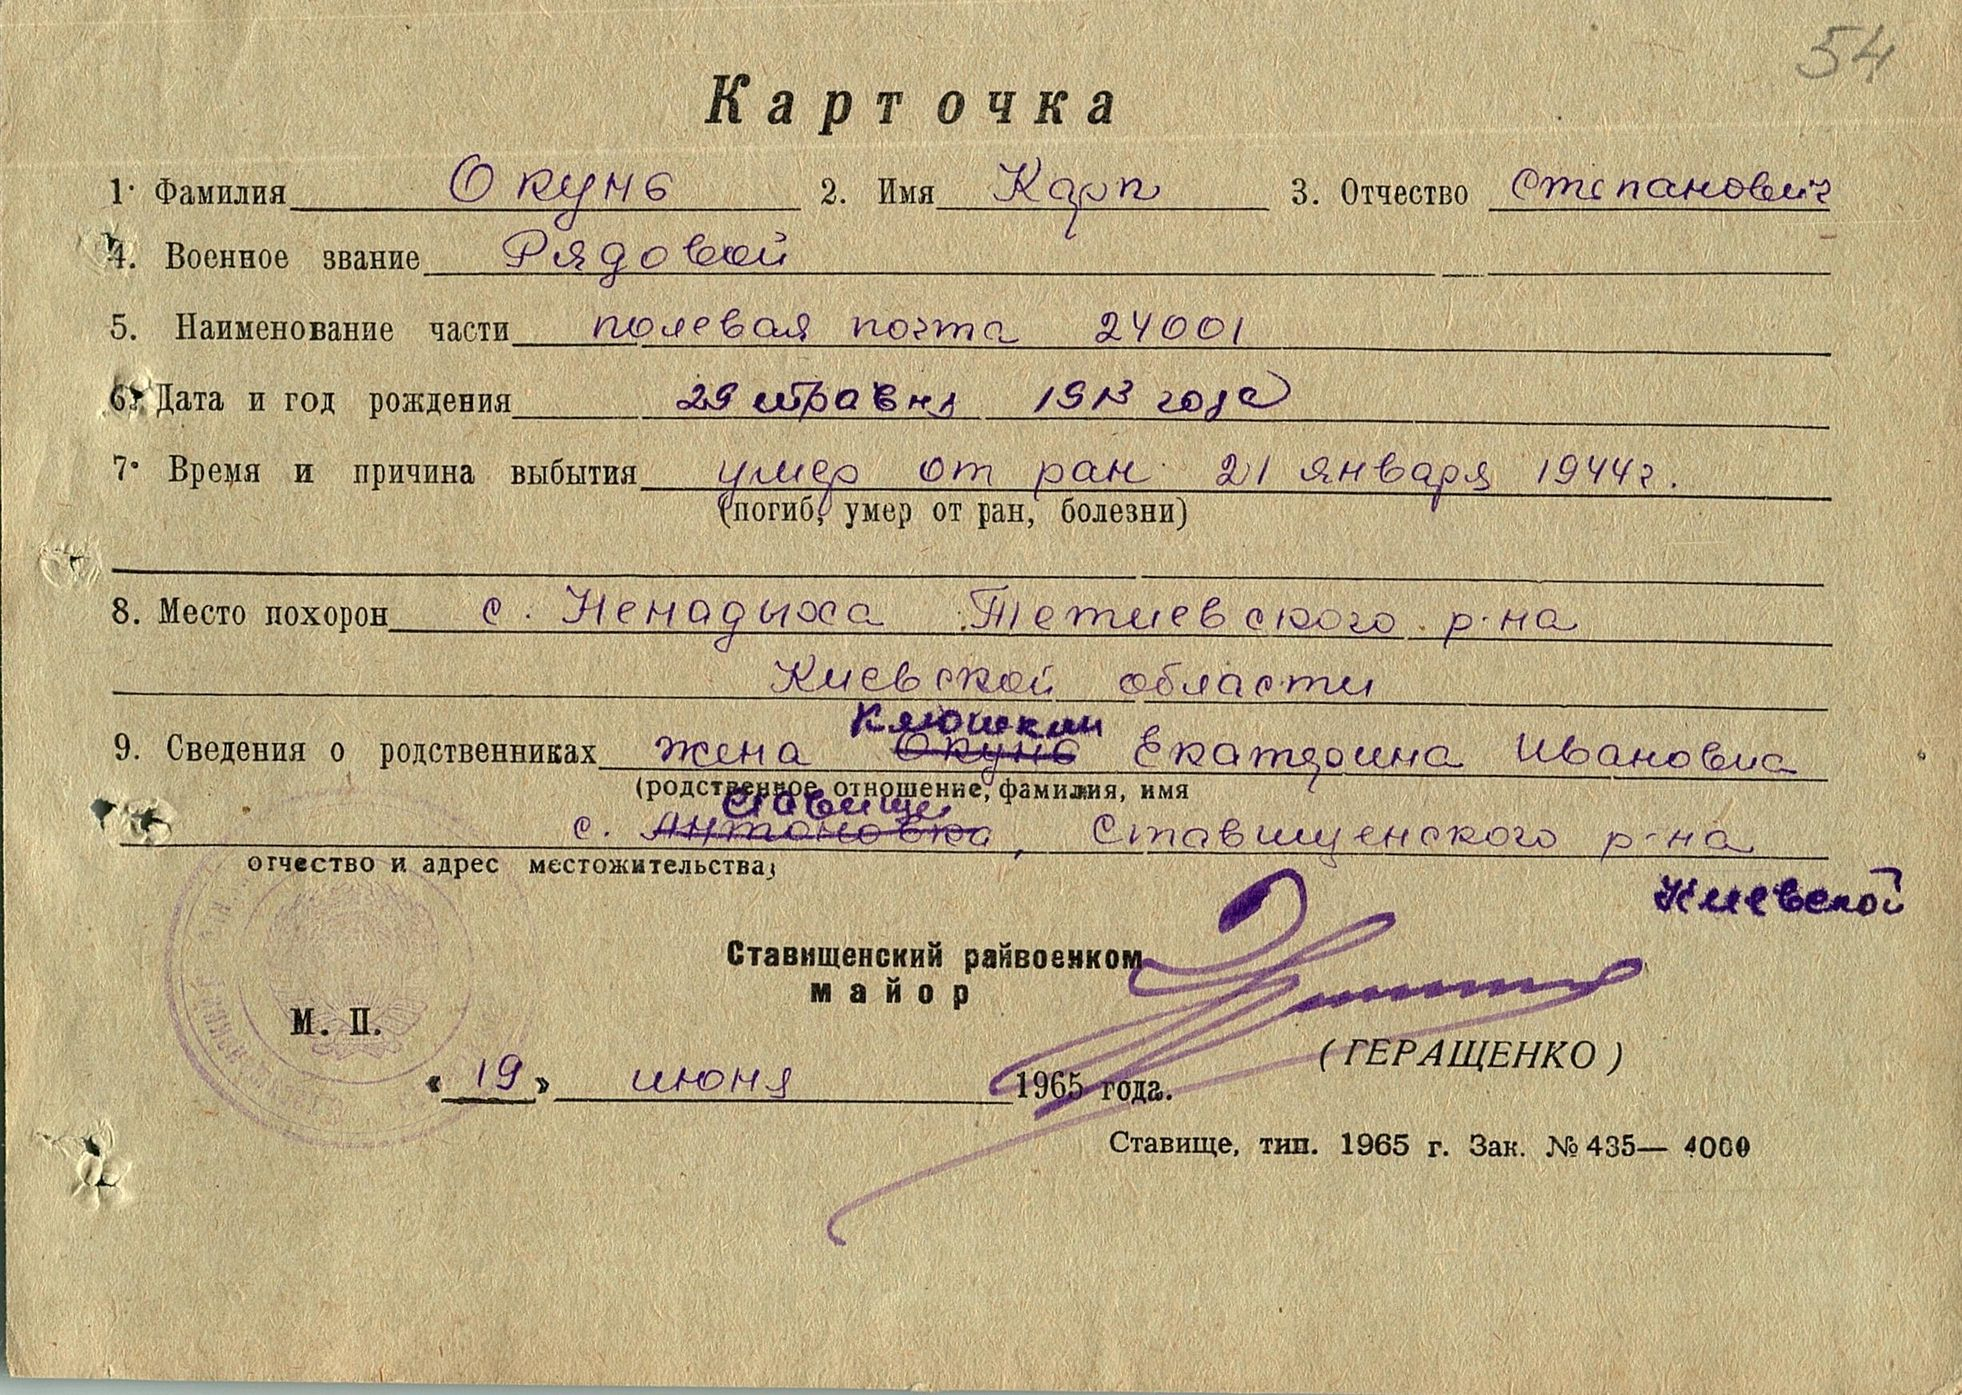 54
Карточка
1. Фамилия Окунь 2. Имя Карп 3. Отчество Степанович
4. Военное звание Рядовой
5. Наименование части полевая почта 24001
6. Дата и год рождения 29 травня 1913 года
7. Время и причина выбытия умер от ран 21 января 1944 г.
(погиб, умер от ран, болезни)
8. Место похорон с. Ненадыха Тетиевского р-на
Киевской области
Клюшкин
9. Сведения о родственниках жена Окунь Екатерина Ивановна
(родственное отношение, фамилия, имя
Ставище
с. Антоновка, Ставищенского р-на
отчество и адрес местожительства)
Киевской
Ставищенский райвоенком
майор
М. П.
(ГЕРАЩЕНКО)
«19» июня 1965 года.
Ставище, тип. 1965 г. Зак. № 435— 4000